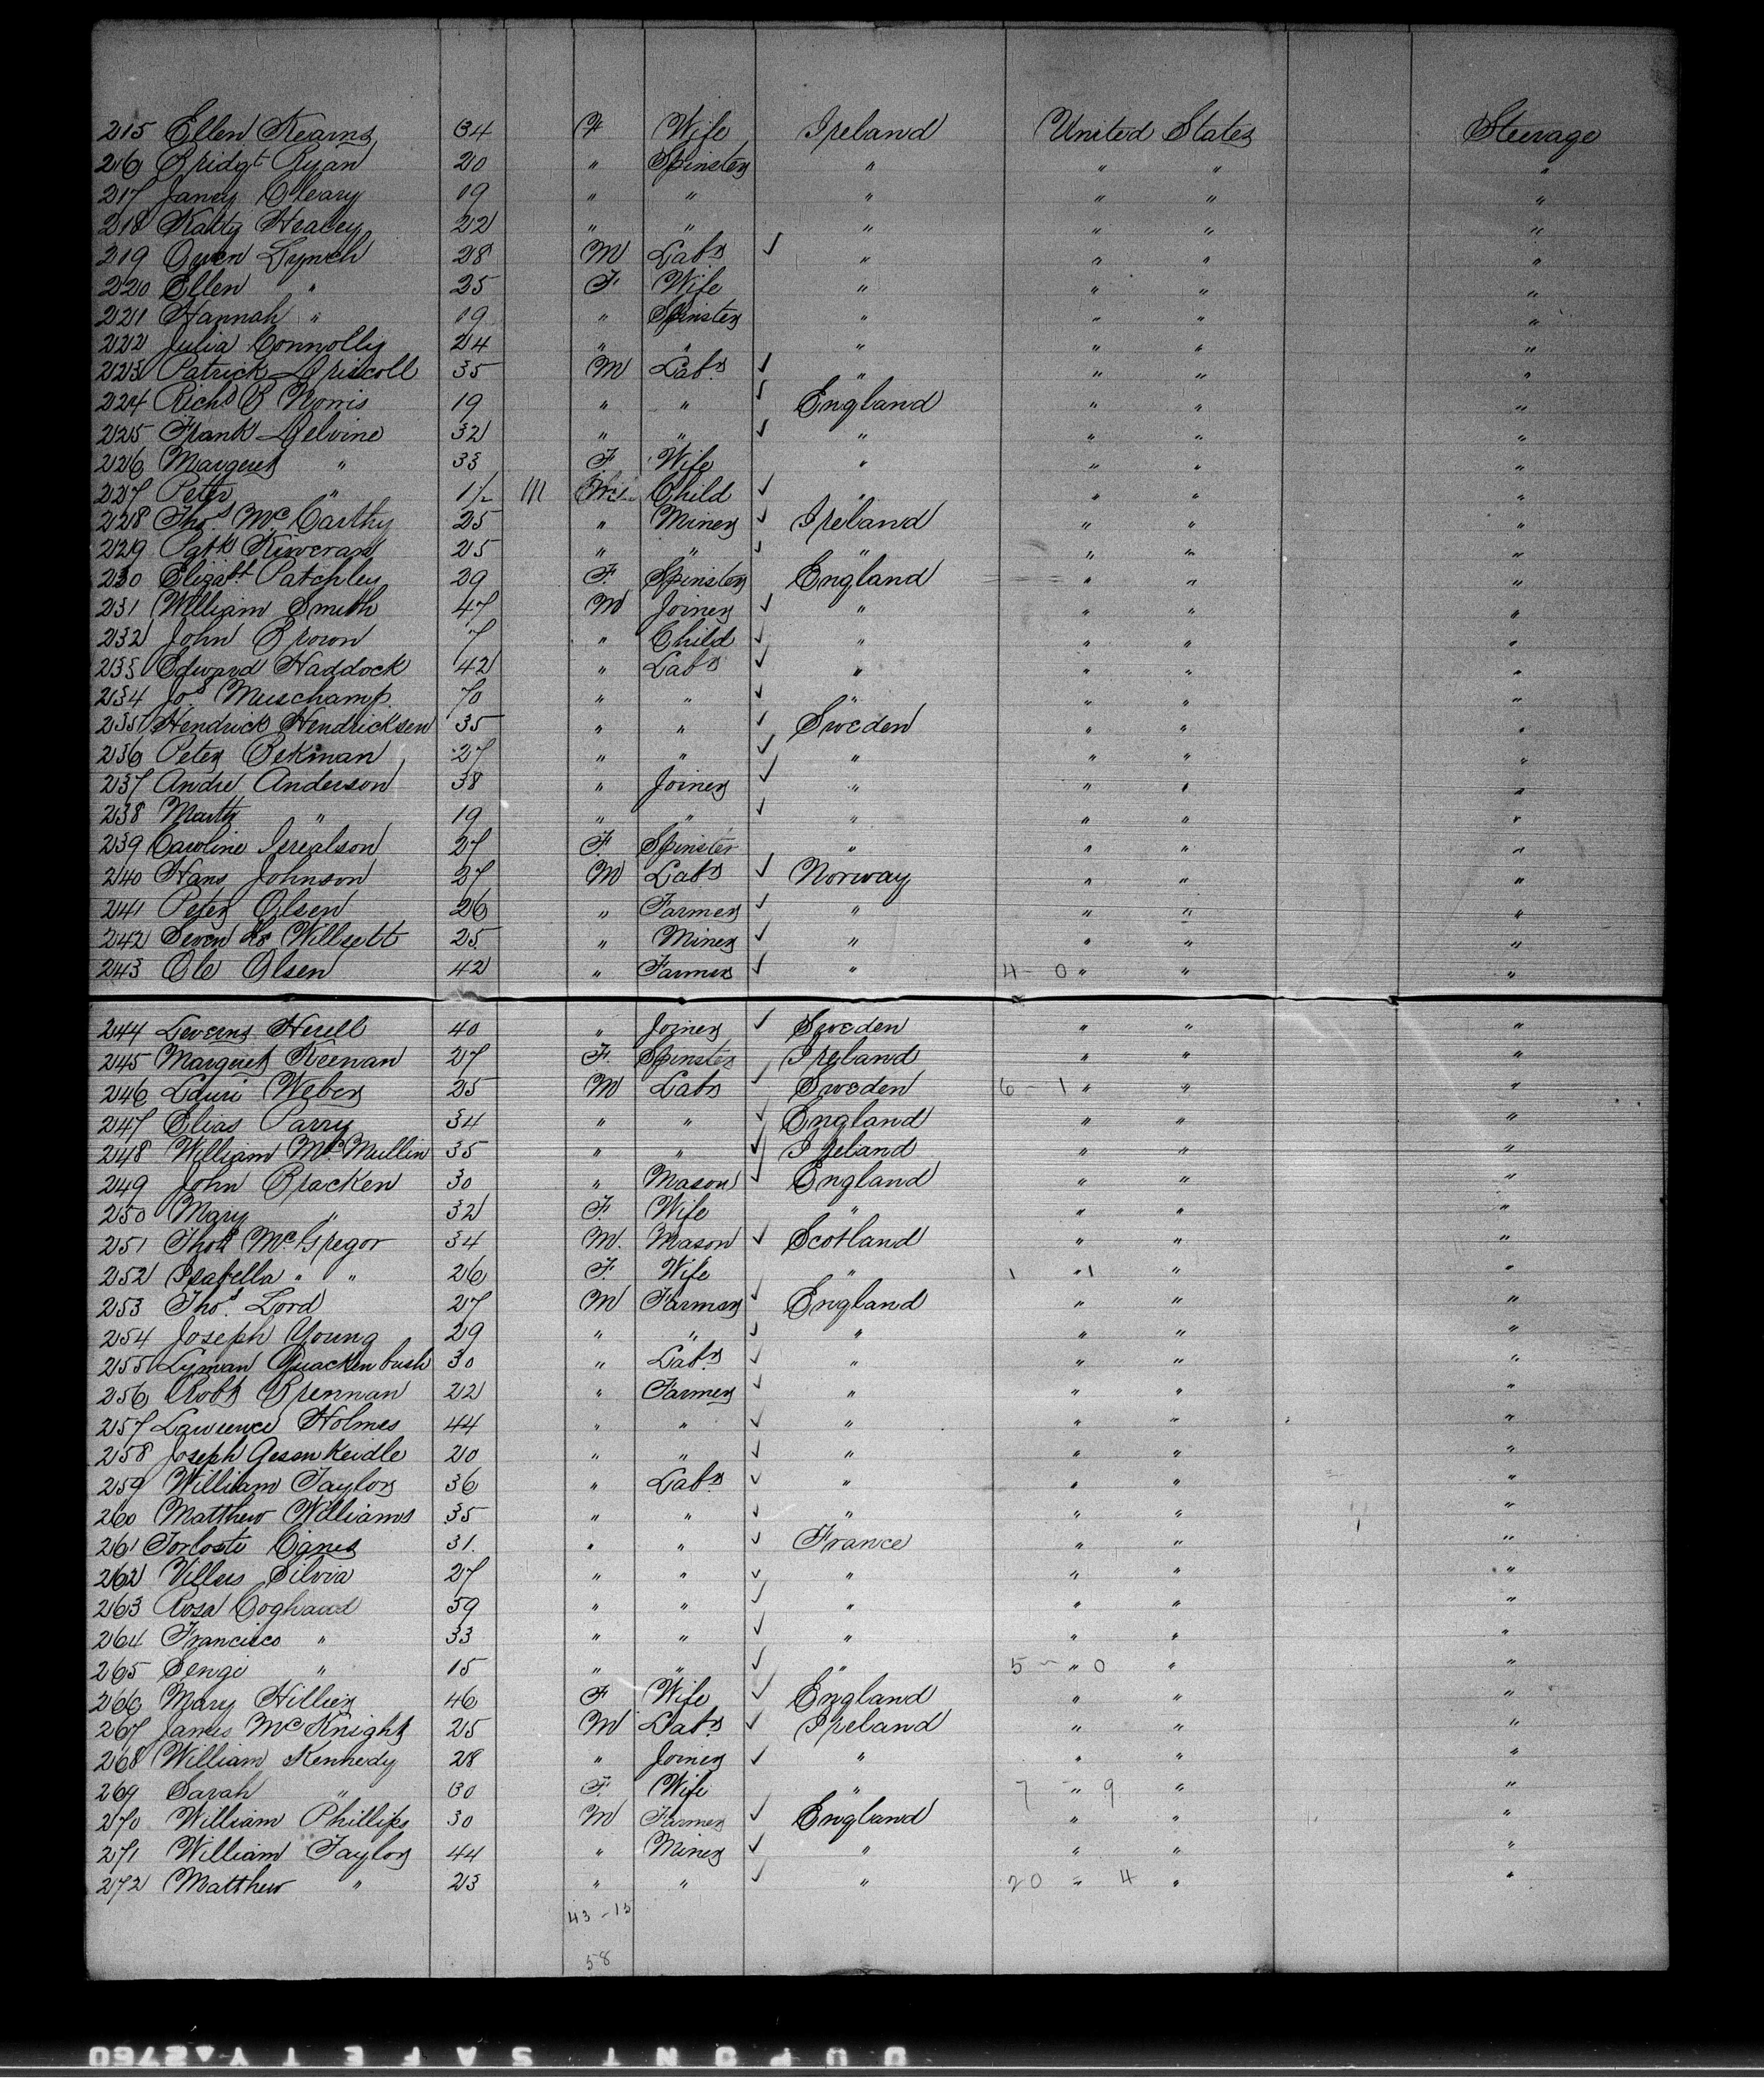 215 Ellen Kearns 34 F Wife Ireland United States Steerage
216 Bridgt Ryan 20 " Spinster " " " "
217 Janey O'Leary 19 " " " " " "
218 Katty Healey 22 " " " " " "
219 Owen Lynch 28 M Labr ✓ " " " "
220 Ellen " 25 F Wife " " " "
221 Hannah " 19 " Spinster " " " "
222 Julia Connolly 24 " " " " " "
223 Patrick Driscoll 35 M Labr ✓ " " " "
224 Richd B Norris 19 " " ✓ England " " "
225 Frank Delvine 32 " " ✓ " " " "
226 Margeret " 33 F Wife " " " "
227 Peter " 1½ /// Child ✓ " " " "
228 Thos Mc Carthy 25 " Miner ✓ Ireland " " "
229 Patk Kiweran 25 " " ✓ " " " "
230 Elizabt Patchley 29 F. Spinster England " " "
231 William Smith 47 M Joiner ✓ " " " "
232 John Brown 7 " Child ✓ " " " "
233 Edward Haddock 42 " Labr ✓ " " " "
234 Jos Muschamp 70 " " ✓ " " " "
235 Hendrick Hendricksen 35 " " ✓ Sweden " " "
236 Peter Bekman 27 " " ✓ " " " "
237 Andre Anderson 38 " Joiner ✓ " " " "
238 Marth " 19 " " ✓ " " " "
239 Caroline Isrealson 27 F. Spinster " " " "
240 Hans Johnson 27 M Labr ✓ Norway " " "
241 Peter Olsen 26 " Farmer ✓ " " " "
242 Seven Willsett 25 " Miner ✓ " " " "
243 Ole Olsen 42 " Farmer ✓ " 4 - 0 " " "
244 Leverns Herell 40 " Joiner ✓ Sweden " " "
245 Margeret Keenan 27 F. Spinster Ireland " " "
246 Weber 25 M Labr ✓ Sweden 6 - 1 " " "
247 Elias Parry 34 " " ✓ England " " "
248 William Mc Mullin 35 " " ✓ Ireland " " "
249 John Bracken 30 " Mason ✓ England " " "
250 Mary " 32 F. Wife " " " "
251 Thos Mc Gregor 34 M. Mason ✓ Scotland " " "
252 Isabella " " 26 F. Wife " 1 " 1 " "
253 Thos Lord 27 M Farmer ✓ England " " "
254 Joseph Young 29 " " ✓ " " " "
255 Lyman Quackenbush 30 " Labr ✓ " " " "
256 Robt Brennan 22 " Farmer ✓ " " " "
257 Lawrence Holmes 44 " " ✓ " " " "
258 Joseph Keidle 20 " " ✓ " " " "
259 William Taylor 36 " Labr ✓ " " " "
260 Matthew Williams 35 " " ✓ " " " "
261 31. " " ✓ France " " "
262 Silvia 27 " " ✓ " " " "
263 Rosa 59 " " ✓ " " " "
264 Francisco " 33 " " ✓ " " " "
265 Sengi " 15 " " ✓ " 5 - " 0 " "
266 Mary Hillier 46 F Wife ✓ England " " "
267 James Mc Knight 25 M Labr ✓ Ireland " " "
268 William Kennedy 28 " Joiner ✓ " " " "
269 Sarah " 30 F. Wife " 7 " 9 " "
270 William Phillips 30 M Farmer ✓ England " " "
271 William Taylor 44 " Miner ✓ " " " "
272 Matthew " 23 " " ✓ " 20 " 4 " "
43 - 15
58
DUPONT SAFETY